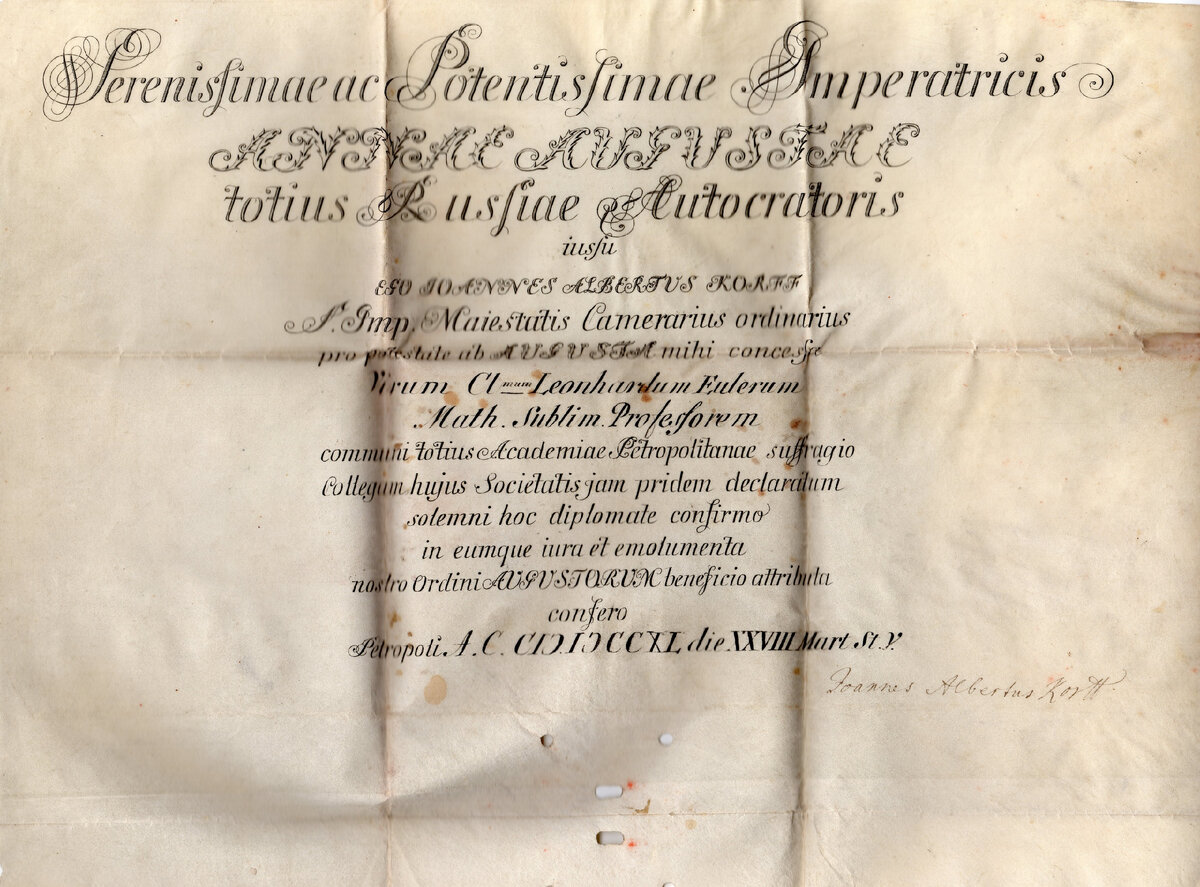 Serenissimae ac Potentissimae Imperatricis
ANNAE AUGUSTAE
totius Russiae Autocratoris
iussu
EGO IOANNES ALBERTUS KORFF
S. Imp. Maiestatis Camerarius ordinarius
pro potestate ab AUGUSTA mihi concessa
Virum Cl mum Leonhardum Eulerum
Math. Sublim. Professorem
communi totius Academiae Petropolitanae suffragio
Collegam hujus Societatis jam pridem declaratum
solemni hoc diplomate confirmo
in eumque iura et emolumenta
nostro Ordini AUGUSTORUM beneficio attributa
confero
Petropoli A. C. CIↃ.IↃCCXL die XXVIII Mart St. V.
Joannes Albertus Korff